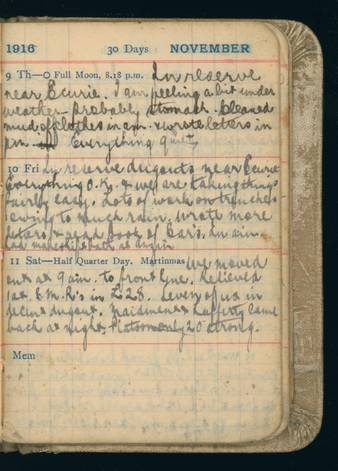 1916 30 Days NOVEMBER
9 Th—O Full Moon, 8.18 p.m. In reserve
near Ecurie. I am feeling a bit under
weather - probably stomach. Cleaned
mud off clothes in am. & wrote letters in
pm. Everything quiet
10 Fri In reserve dugouts near Ecurie
Everything O.K. & we are taking things
fairly easy. Lots of work on trenches
owing to much rain. Wrote more
letters & read book of
had bath at
11 Sat—Half Quarter Day. Martinmas We moved
out at 9 am. to front line. Relieved
1st. C.M.R's in L28. of us in
dugout. & Lafferty came
back at night. Platoon only 20 strong.
Mem